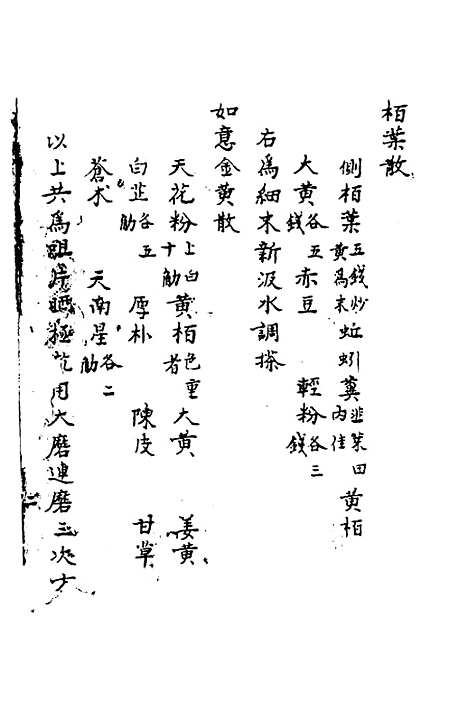 栢葉散
側栢葉五錢炒黄為末蚯蚓糞韭菜田内佳黄栢
大黄各五錢赤豆輕粉各三錢
右為細末新汲水調搽
如意金黄散
天花粉上白十觔黄栢色重者大黄姜黄
白芷各五觔厚朴陳皮甘草
蒼术天南星各二觔
以上共為咀片晒極乾用大磨連磨三次方